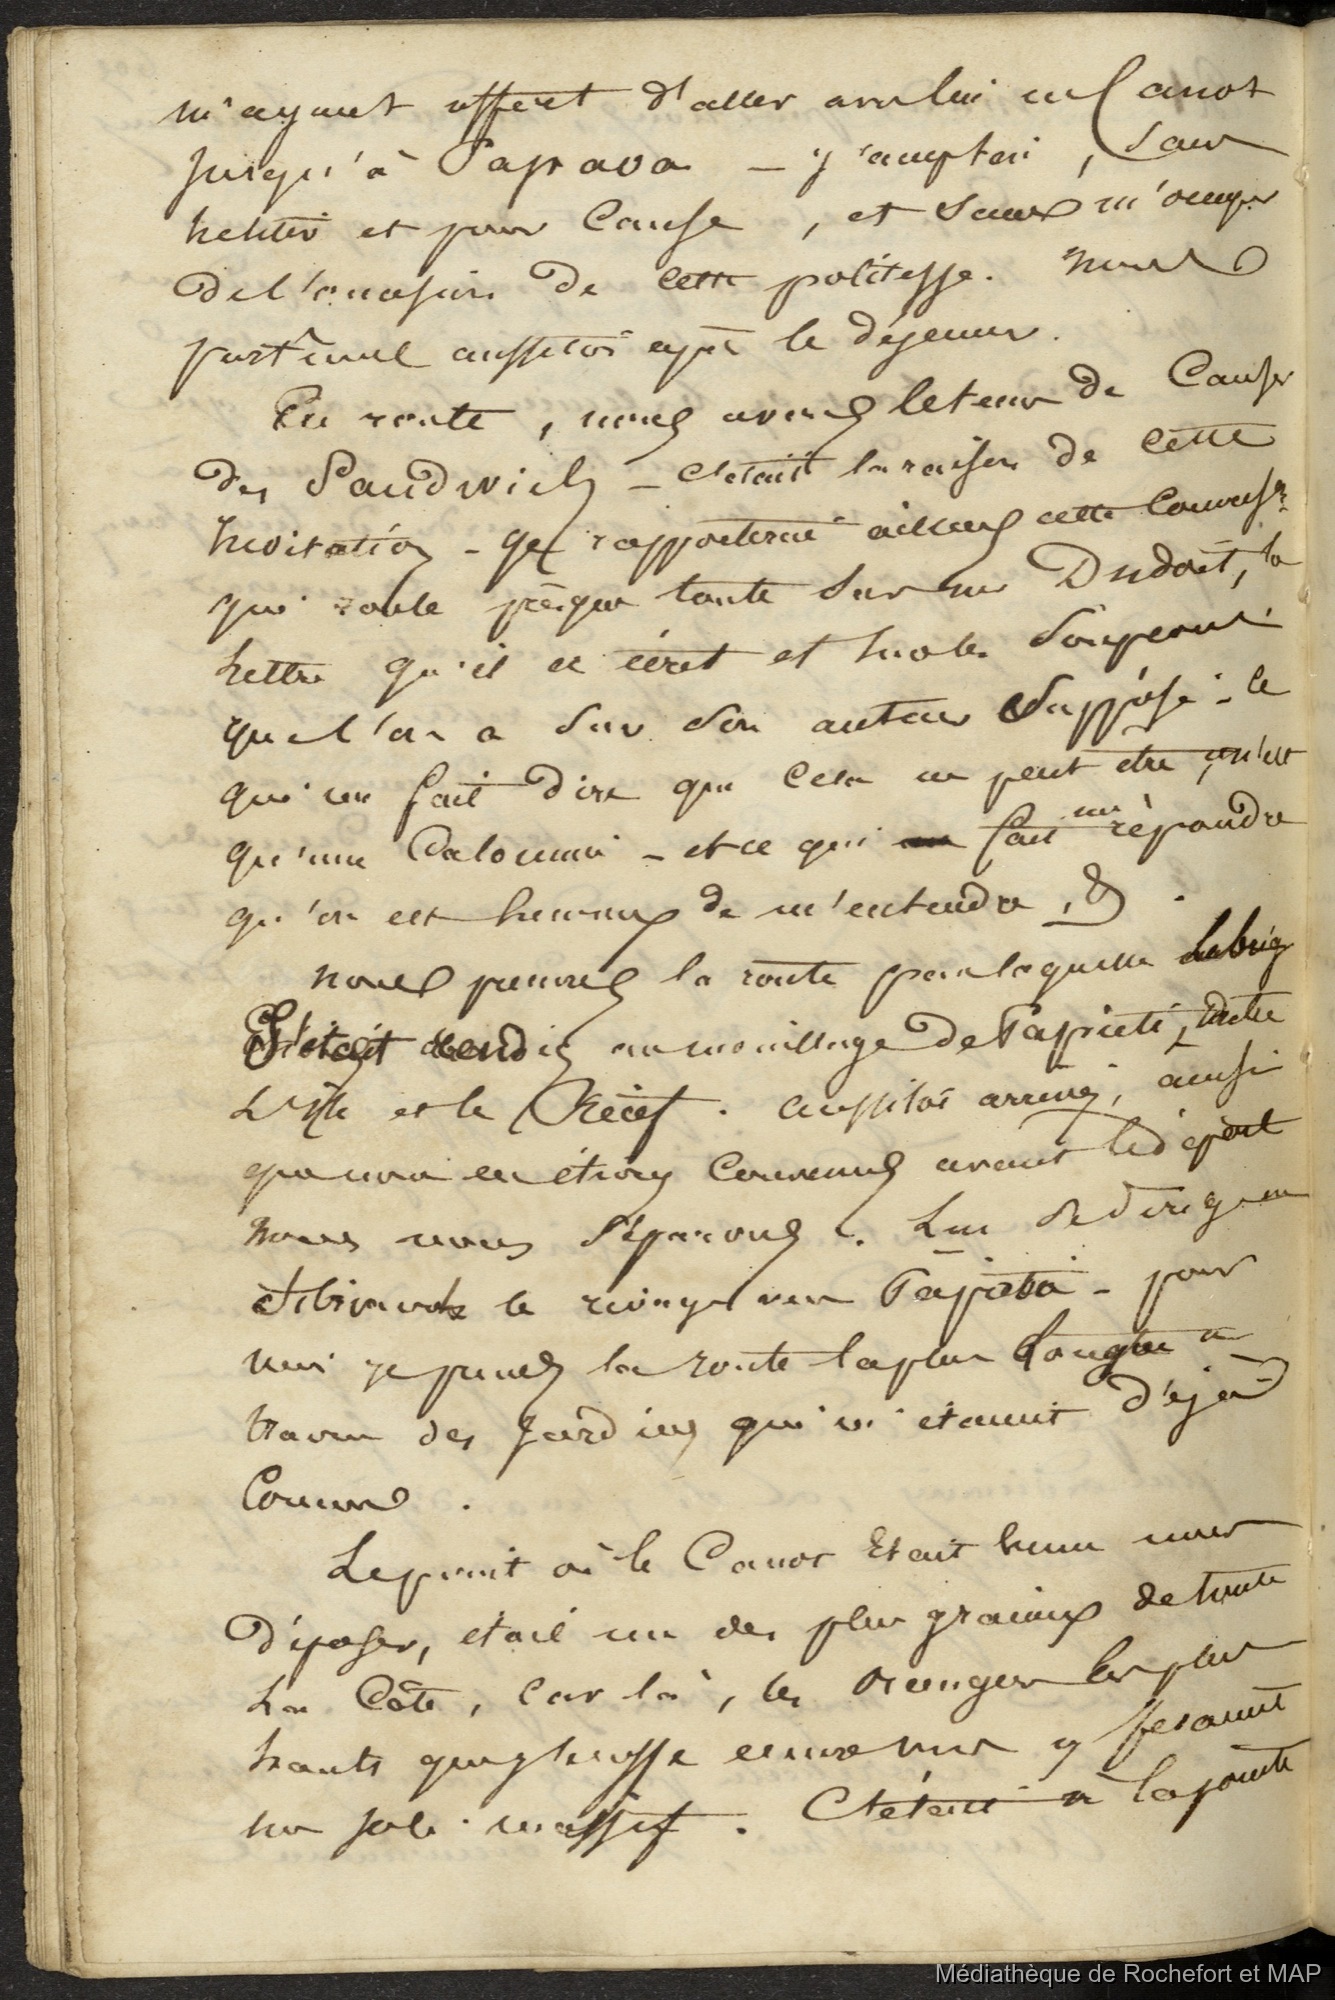 m'ayant offert d'aller avec lui en Canot
jusqu'à Papava - j'acceptai, sans
hésiter et pour Cause, et sans m'occuper
de l'occasion de cette politesse. nous
partîmes aussitôt après le déjeuner.
En route, nous avons le tems de Causer
des Sandwich - c'était la raison de cette
invitation - je rapporterai ailleurs cette Convers.on
qui roule prèsque toute sur mr Dudoit, la
lettre qu'il a écrit et
que l'on a sur son auteur Supposé - ce
qui me fait dire que cela ne peut être, n'est
qu'une Calomnie - et ce qui fait me répondre
qu'on est heureux de m'entendre, &.
nous prenons la route par laquelle le brig
S'était rendu au mouillage de Papeiti, entre
L'Ile et le Récif. aussitôt arrivés, ainsi
que nous en étions Convenus avant le départ
nous nous Séparons. Lui se dirige en
Suivant le rivage vers - pour
moi je prends la route la plus longue à
travers des Jardins qui m'étaient déjà
Connus.
Le point où le Canot Etait venu nous
déposer, était un des plus gracieux de toute
La Côte, Car là, les Orangers les plus
hauts que j'eusse encore vus y fesaient
un joli massif. C'était à la pointe
Médiathèque de Rochefort et MAP